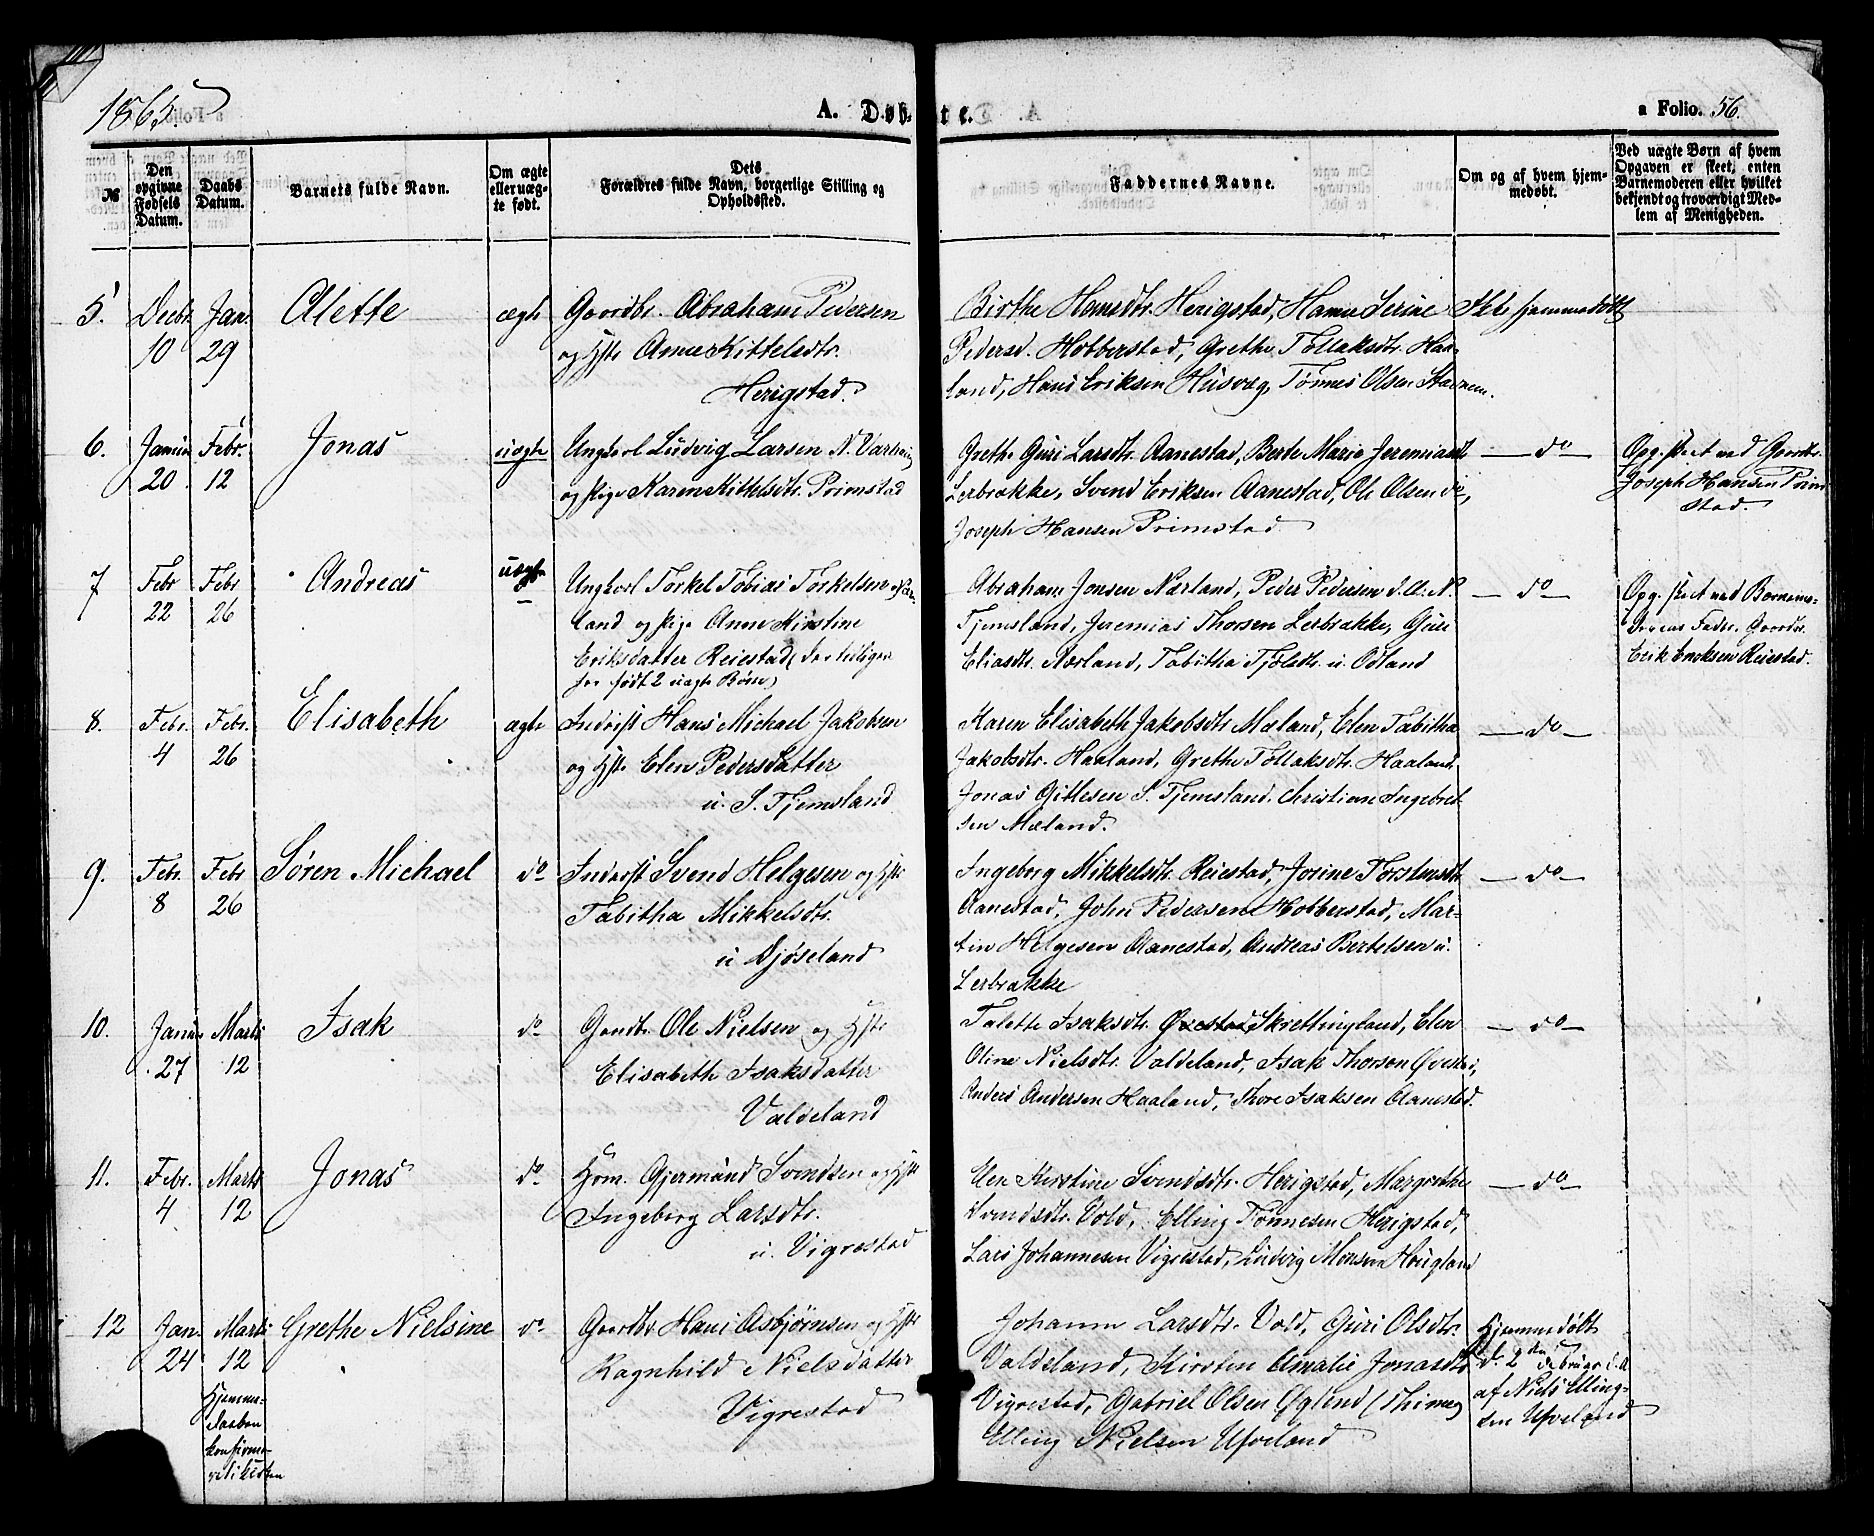 1865.
A. Døbte.
a Folio. 56.
№
Den opgivne Fødsels Datum.
Daabs Datum.
Barnets fulde Navn.
Om ægte eller uægte født.
Dets Forældres fulde Navn, borgerlige Stilling og Opholdssted.
Faddernes Navne.
Om og af hvem hjemmedøbt.
Ved uægte Børn af hvem Opgaven er skeet, enten Barnemoderen eller hvilket bekjendt og troværdigt Medlem af Menigheden.
5. Decbr. 10 Jan. 29 Alette ægte
Gaardbr. Abraham Pedersen
og Hstr Anne Kitteledtr.
Herigstad.
Birthe Hansdtr. Herigstad, Hanne Serine
Pedersd. Hobberstad, Grethe Tollaksdtr. Haa-
land, Hans Eriksen Husvæg, Tønnes Olsen Stavnem.
Ikke hjemmedøbt
6. Januar 20 Febr. 12 Jonas uægte
Ungkarl Ludvig Larsen N. Varhaug
og Pige Karen Kittelsdtr. Primstad
Grethe Guri Larsdtr. Aanestad, Berte Marie Jeremiasdt
Lerbrække, Svend Eriksen Aanestad, Ole Olsen do,
Joseph Hansen Primstad
— do —
Opg. skeet ved Gaardbr.
Joseph Hansen Prim
stad.
7 Febr 22 Febr 26 Andreas uægte
Ungkarl Torkel Tobias Torkelsen Nær-
land og Pige Anne Kirstine
Eriksdatter Reiestad (der tidligere
har født 2 uægte Børn)
Abraham Jonsen Nærland, Peder Pedersen d. Æ. N.
Tjemsland, Jeremias Thorsen Lerbrække, Guri
Eliasdtr. Nærland, Tabitha Tjølsdtr. u. Odland
— do —
Opg. skeet ved Barnemo-
derens Fader, Gaardbr.
Erik Eriksen Reiestad.
8. Febr. 4 Febr. 26 Elisabeth ægte
Inderst Hans Michael Jakobsen
og Hstr. Elen Pedersdatter
u. S. Tjemsland
Karen Elisabeth Jakobsdtr. Mæland, Elen Tabitha
Jakobsdtr. Haaland, Grethe Tollaksdtr. Haaland,
Jonas Gitlesen S. Tjemsland. Christian Ingebret
sen Mæland.
— do —
9. Febr. 8 Febr 26 Søren Michael do
Inderst Svend Helgesen og Hstr
Tabitha Mikkelsdtr.
u Djøseland
Ingeborg Mikkelsdtr. Reiestad, Josine Torstensdtr
Aanestad, John Pedersen Hobberstad, Mar-
tin Helgesen Aanestad, Andreas Bertelsen u.
Lerbrække
— do —
10. Januar 27 Marts 12 Isak do
Gaardbr. Ole Nielsen og Hstr
Elisabeth Isaksdatter
Valdeland
Talette Isaksdtr. Øvestad Skrettingland, Elen
Oline Nielsdtr. Valdeland, Isak Thorsen Øvestad,
Anders Andersen Haaland, Thore Isaksen Aanestad.
— do —
11. Febr. 4 Marts 12 Jonas do
Hsm. Gjermund Svendsen og Hstr
Ingeborg Larsdtr.
u. Vigrestad
Elen Kirstine Svendsdtr. Herigstad, Margrethe
Svendsdtr. Vold, Elling Tønnesen Herigstad,
Lars Johannesen Vigrestad, Ludvig Monsen Hougland
— do —
12 Jan. 24 Marts 12 Grethe Nielsine do
Hjemme-
daaben
konfirme-
res i Kirken
Gaardbr Hans Asbjørnsen og Hstr
Ragnhild Nielsdatter
Vigrestad
Johanne Larsdtr. Vold, Guri Olsdtr.
Valdeland, Kirsten Amalie Jonasdtr
Vigrestad, Gabriel Olsen Øglend (Thime)
Elling Nielsen Ueland
Hjemmedøbt
d. 2den Februar d. A
af Niels Elling-
sen Ueland